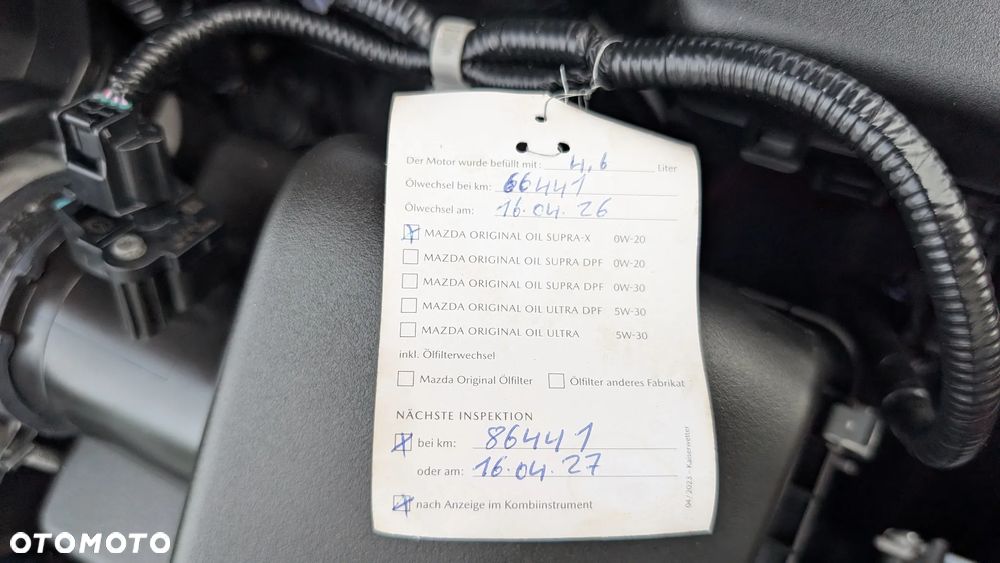 Der Motor wurde befüllt mit: 4,6 Liter
Ölwechsel bei km: 66441
Ölwechsel am: 16.04.26
MAZDA ORIGINAL OIL SUPRA-X 0W-20
MAZDA ORIGINAL OIL SUPRA DPF 0W-20
MAZDA ORIGINAL OIL SUPRA DPF 0W-30
MAZDA ORIGINAL OIL ULTRA DPF 5W-30
MAZDA ORIGINAL OIL ULTRA 5W-30
inkl. Ölfilterwechsel
Mazda Original Ölfilter Ölfilter anderes Fabrikat
NÄCHSTE INSPEKTION
bei km: 86441
oder am: 16.04.27
nach Anzeige im Kombiinstrument
04/2023 - Kaiserwetter
OTOMOTO